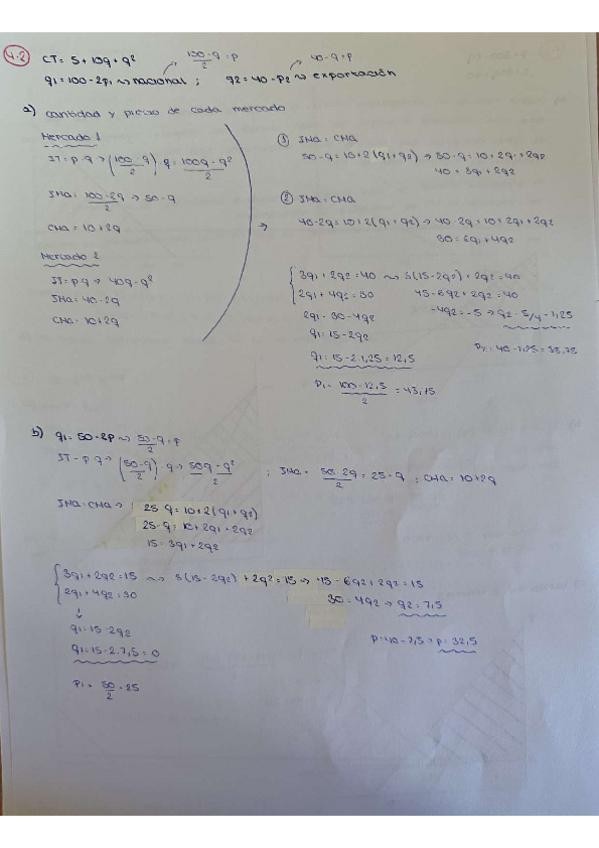 4.2 CT = 5 + 10q + q² 100-q/2 = p 40-q = p
q1 = 100-2p1 ⇝ nacional ; q2 = 40-p2 ⇝ exportación
a) cantidad y precio de cada mercado
Mercado 1
IT = p·q → (100-q/2) q = 100q-q²/2
IMa = 100-2q/2 → 50-q
CMa = 10+2q
Mercado 2
IT = p·q → 40q-q²
IMa = 40-2q
CMa = 10+2q
① IMa = CMa
50-q = 10+2(q1+q2) → 50-q = 10+2q1+2q2
40 = 3q1+2q2
② IMa = CMa
40-2q = 10+2(q1+q2) → 40-2q = 10+2q1+2q2
30 = 6q1+4q2
3q1+2q2 = 40 ⇝ 3(15-2q2)+2q2 = 40
2q1+4q2 = 30 45-6q2+2q2 = 40
2q1 = 30-4q2 -4q2 = -5 → q2 = 5/4 = 1,25
q1 = 15-2q2
q1 = 15-2·1,25 = 12,5 P2 = 40-1,25 = 38,75
P1 = 100-12,5/2 = 43,75
b) q1 = 50-2p ⇝ 50-q/2 = p
IT = p·q → (50-q/2)·q → 50q-q²/2 ; IMa = 50-2q/2 = 25-q ; CMa = 10+2q
IMa = CMa → 25-q = 10+2(q1+q2)
25-q = 10+2q1+2q2
15 = 3q1+2q2
3q1+2q2 = 15 ⇝ 3(15-2q2)+2q2 = 15 → 45-6q2+2q2 = 15
2q1+4q2 = 30 30 = 4q2 → q2 = 7,5
↓
q1 = 15-2q2
q1 = 15-2·7,5 = 0 P = 40-7,5 → p = 32,5
P1 = 50/2 = 25